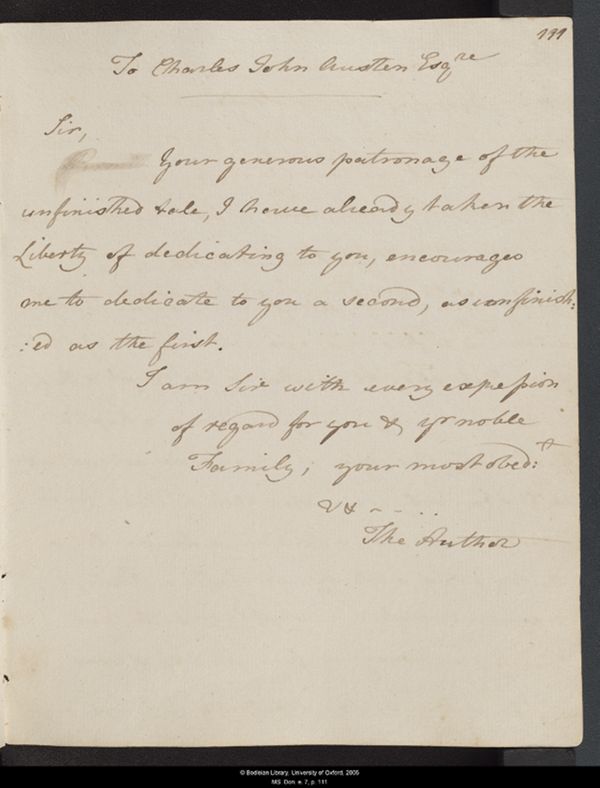 111
To Charles John Austen Esqre
Sir,
Your generous patronage of the
unfinished tale, I have already taken the
Liberty of dedicating to you, encourages
me to dedicate to you a second, as unfinish:
:ed as the first.
I am Sir with every expression
of regard for you & yr noble
Family, your most obed:t
&c - - . .
The Author
© Bodleian Library, University of Oxford, 2005
MS. Don. e. 7, p. 111